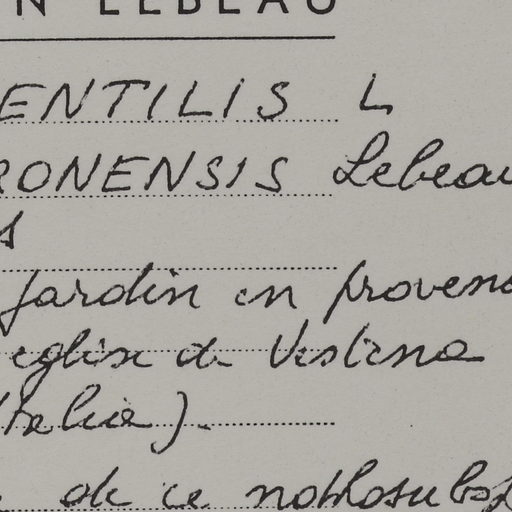 N LEBEAU
ENTILIS L
RONENSIS Lebeau
s
jardin en provenc
eglise de Vestena
Italie).
de ce nothosubsp